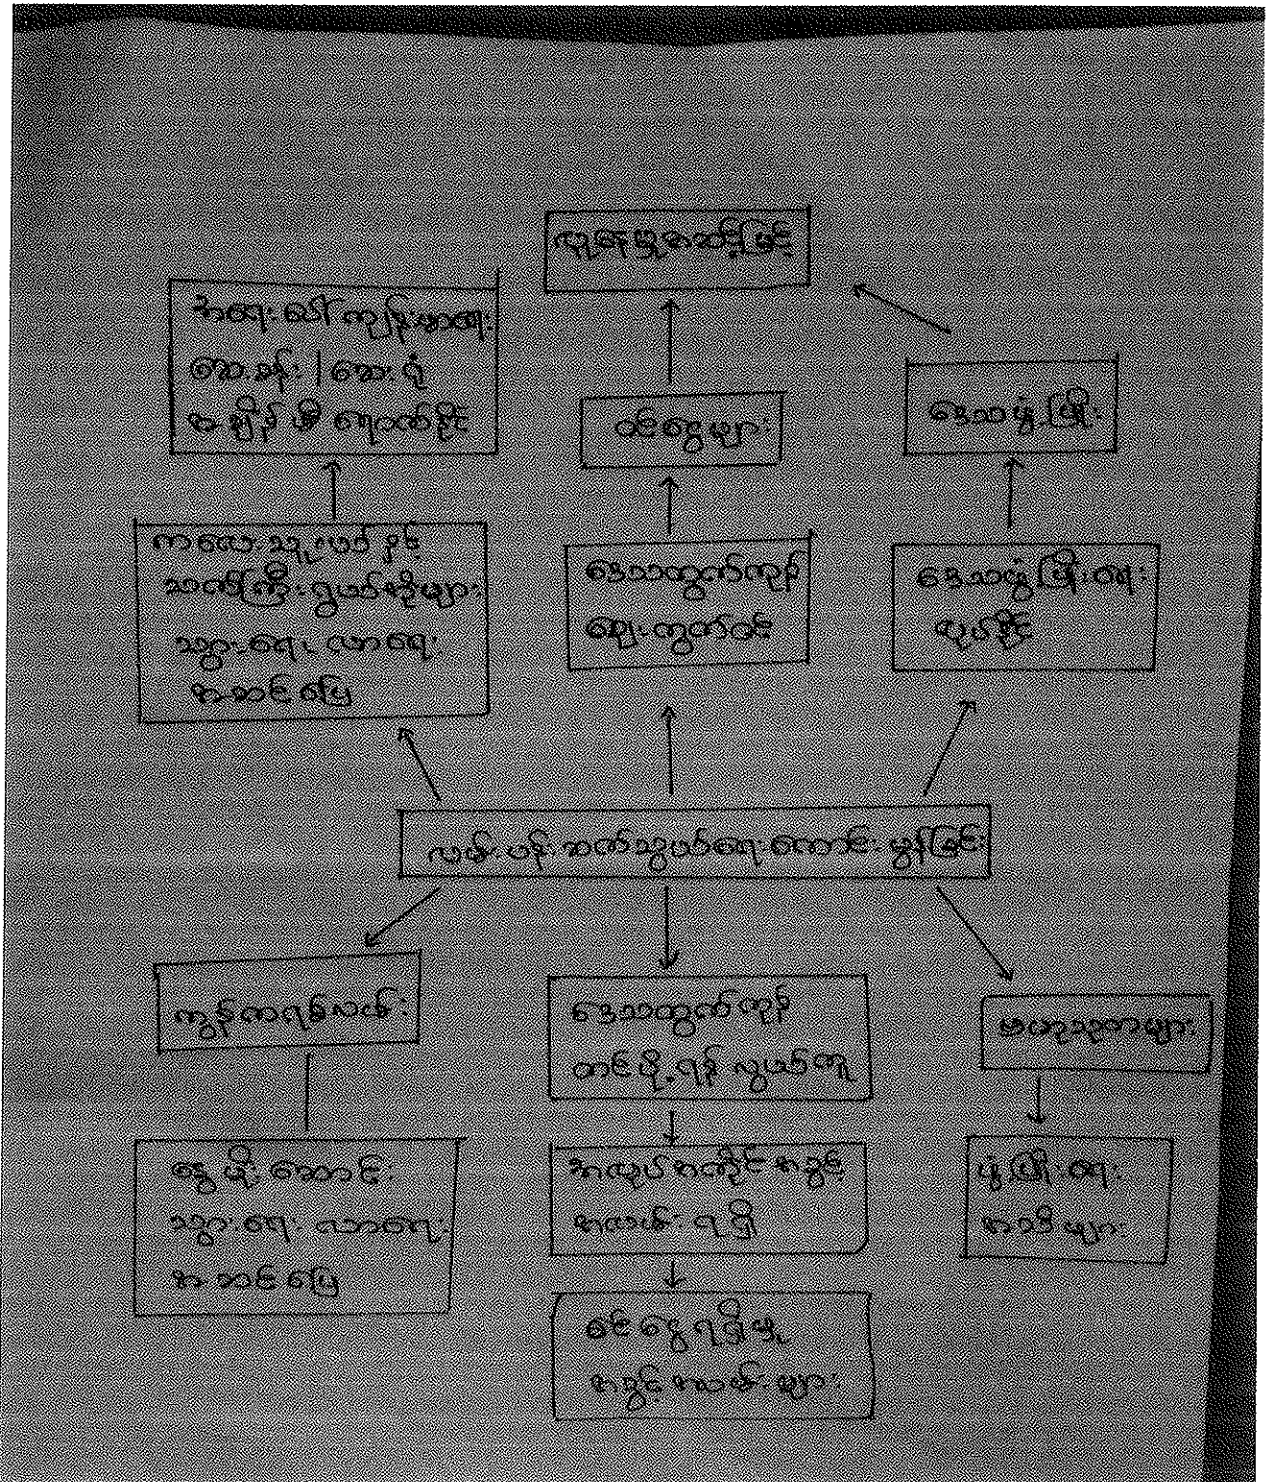 လူနေမှုအဆင့်မြင့်
အရေးပေါ် ကျန်းမာရေး
ဆေးခန်း | ဆေးရုံ
အချိန်မီ ရောက်နိုင်
ဝင်ငွေများ
ဒေသဖွံ့ဖြိုး
ကလေးသူငယ်နှင့်
သက်ကြီးရွယ်အိုများ
သွားရေးလာရေး
အဆင်ပြေ
ဒေသထွက်ကုန်
ဈေးကွက်ဝင်
ဒေသဖွံ့ဖြိုးရေး
လုပ်နိုင်
လမ်းပန်းဆက်သွယ်ရေးကောင်းမွန်ခြင်း
ကွန်ကရစ်လမ်း
ဒေသထွက်ကုန်
တင်ပို့ရန် လွယ်ကူ
ဗဟုသုတများ
နွေမိုးဆောင်း
သွားရေးလာရေး
အဆင်ပြေ
အလုပ်အကိုင်အခွင့်
အလမ်းရရှိ
ဖွံ့ဖြိုးရေး
အသိများ
ဝင်ငွေရရှိမှု
အခွင့်အလမ်းများ